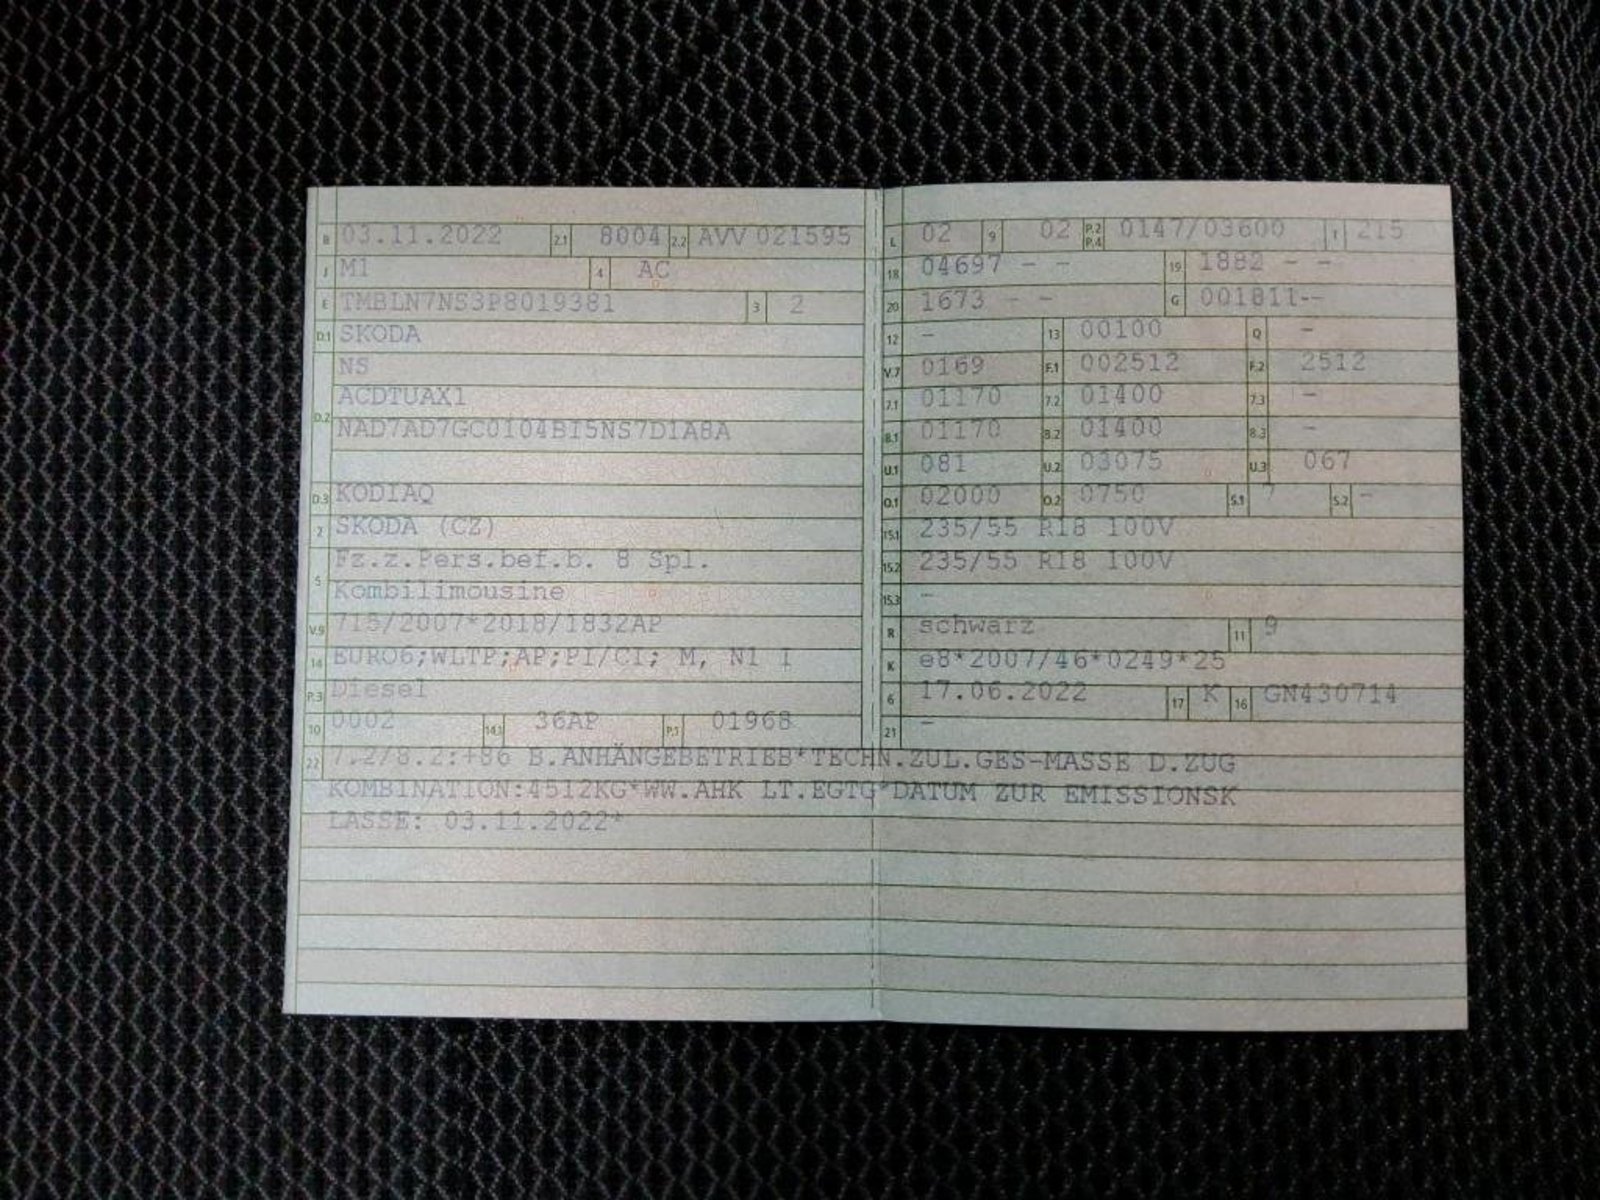 B 03.11.2022 2.1 8004 2.2 AVV 021595
J M1 4 AC
E TMBLN7NS3P8019381 3 2
D.1 SKODA
NS
D.2 ACDTUAX1
NAD7AD7GC0104BI5NS7D1A8A
D.3 KODIAQ
2 SKODA (CZ)
5 Fz.z.Pers.bef.b. 8 Spl.
Kombilimousine
V.9 715/2007*2018/1832AP
14 EURO6;WLTP;AP;PI/CI; M, N1 I
P.3 Diesel
10 0002 14.1 36AP P.1 01968
L 02 9 02 P.2 P.4 0147/03600 T 215
18 04697 - - 19 1882 - -
20 1673 - - G 001811--
12 - 13 00100 Q -
V.7 0169 F.1 002512 F.2 2512
7.1 01170 7.2 01400 7.3 -
8.1 01170 8.2 01400 8.3 -
U.1 081 U.2 03075 U.3 067
O.1 02000 O.2 0750 S.1 7 S.2 -
15.1 235/55 R18 100V
15.2 235/55 R18 100V
15.3 -
R schwarz 11 9
K e8*2007/46*0249*25
6 17.06.2022 17 K 16 GN430714
21 -
22 7.2/8.2:+86 B.ANHÄNGEBETRIEB*TECHN.ZUL.GES-MASSE D.ZUG
KOMBINATION:4512KG*WW.AHK LT.EGTG*DATUM ZUR EMISSIONSK
LASSE: 03.11.2022*